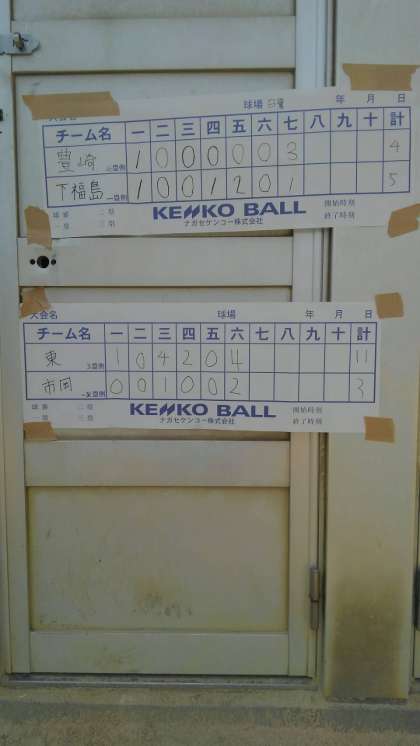 大会名 球場 年 月 日
チーム名 一 二 三 四 五 六 七 八 九 十 計
豊崎 三塁側 1 0 0 0 0 0 3 4
下福島 一塁側 1 0 0 1 2 0 1 5
球審 二塁 開始時刻
一塁 三塁 終了時刻
KENKO BALL
ナガセケンコー株式会社
大会名 球場 年 月 日
チーム名 一 二 三 四 五 六 七 八 九 十 計
東 3塁側 1 0 4 2 0 4 11
市岡 一塁側 0 0 1 0 0 2 3
球審 二塁 開始時刻
三塁 終了時刻
KENKO BALL
ナガセケンコー株式会社